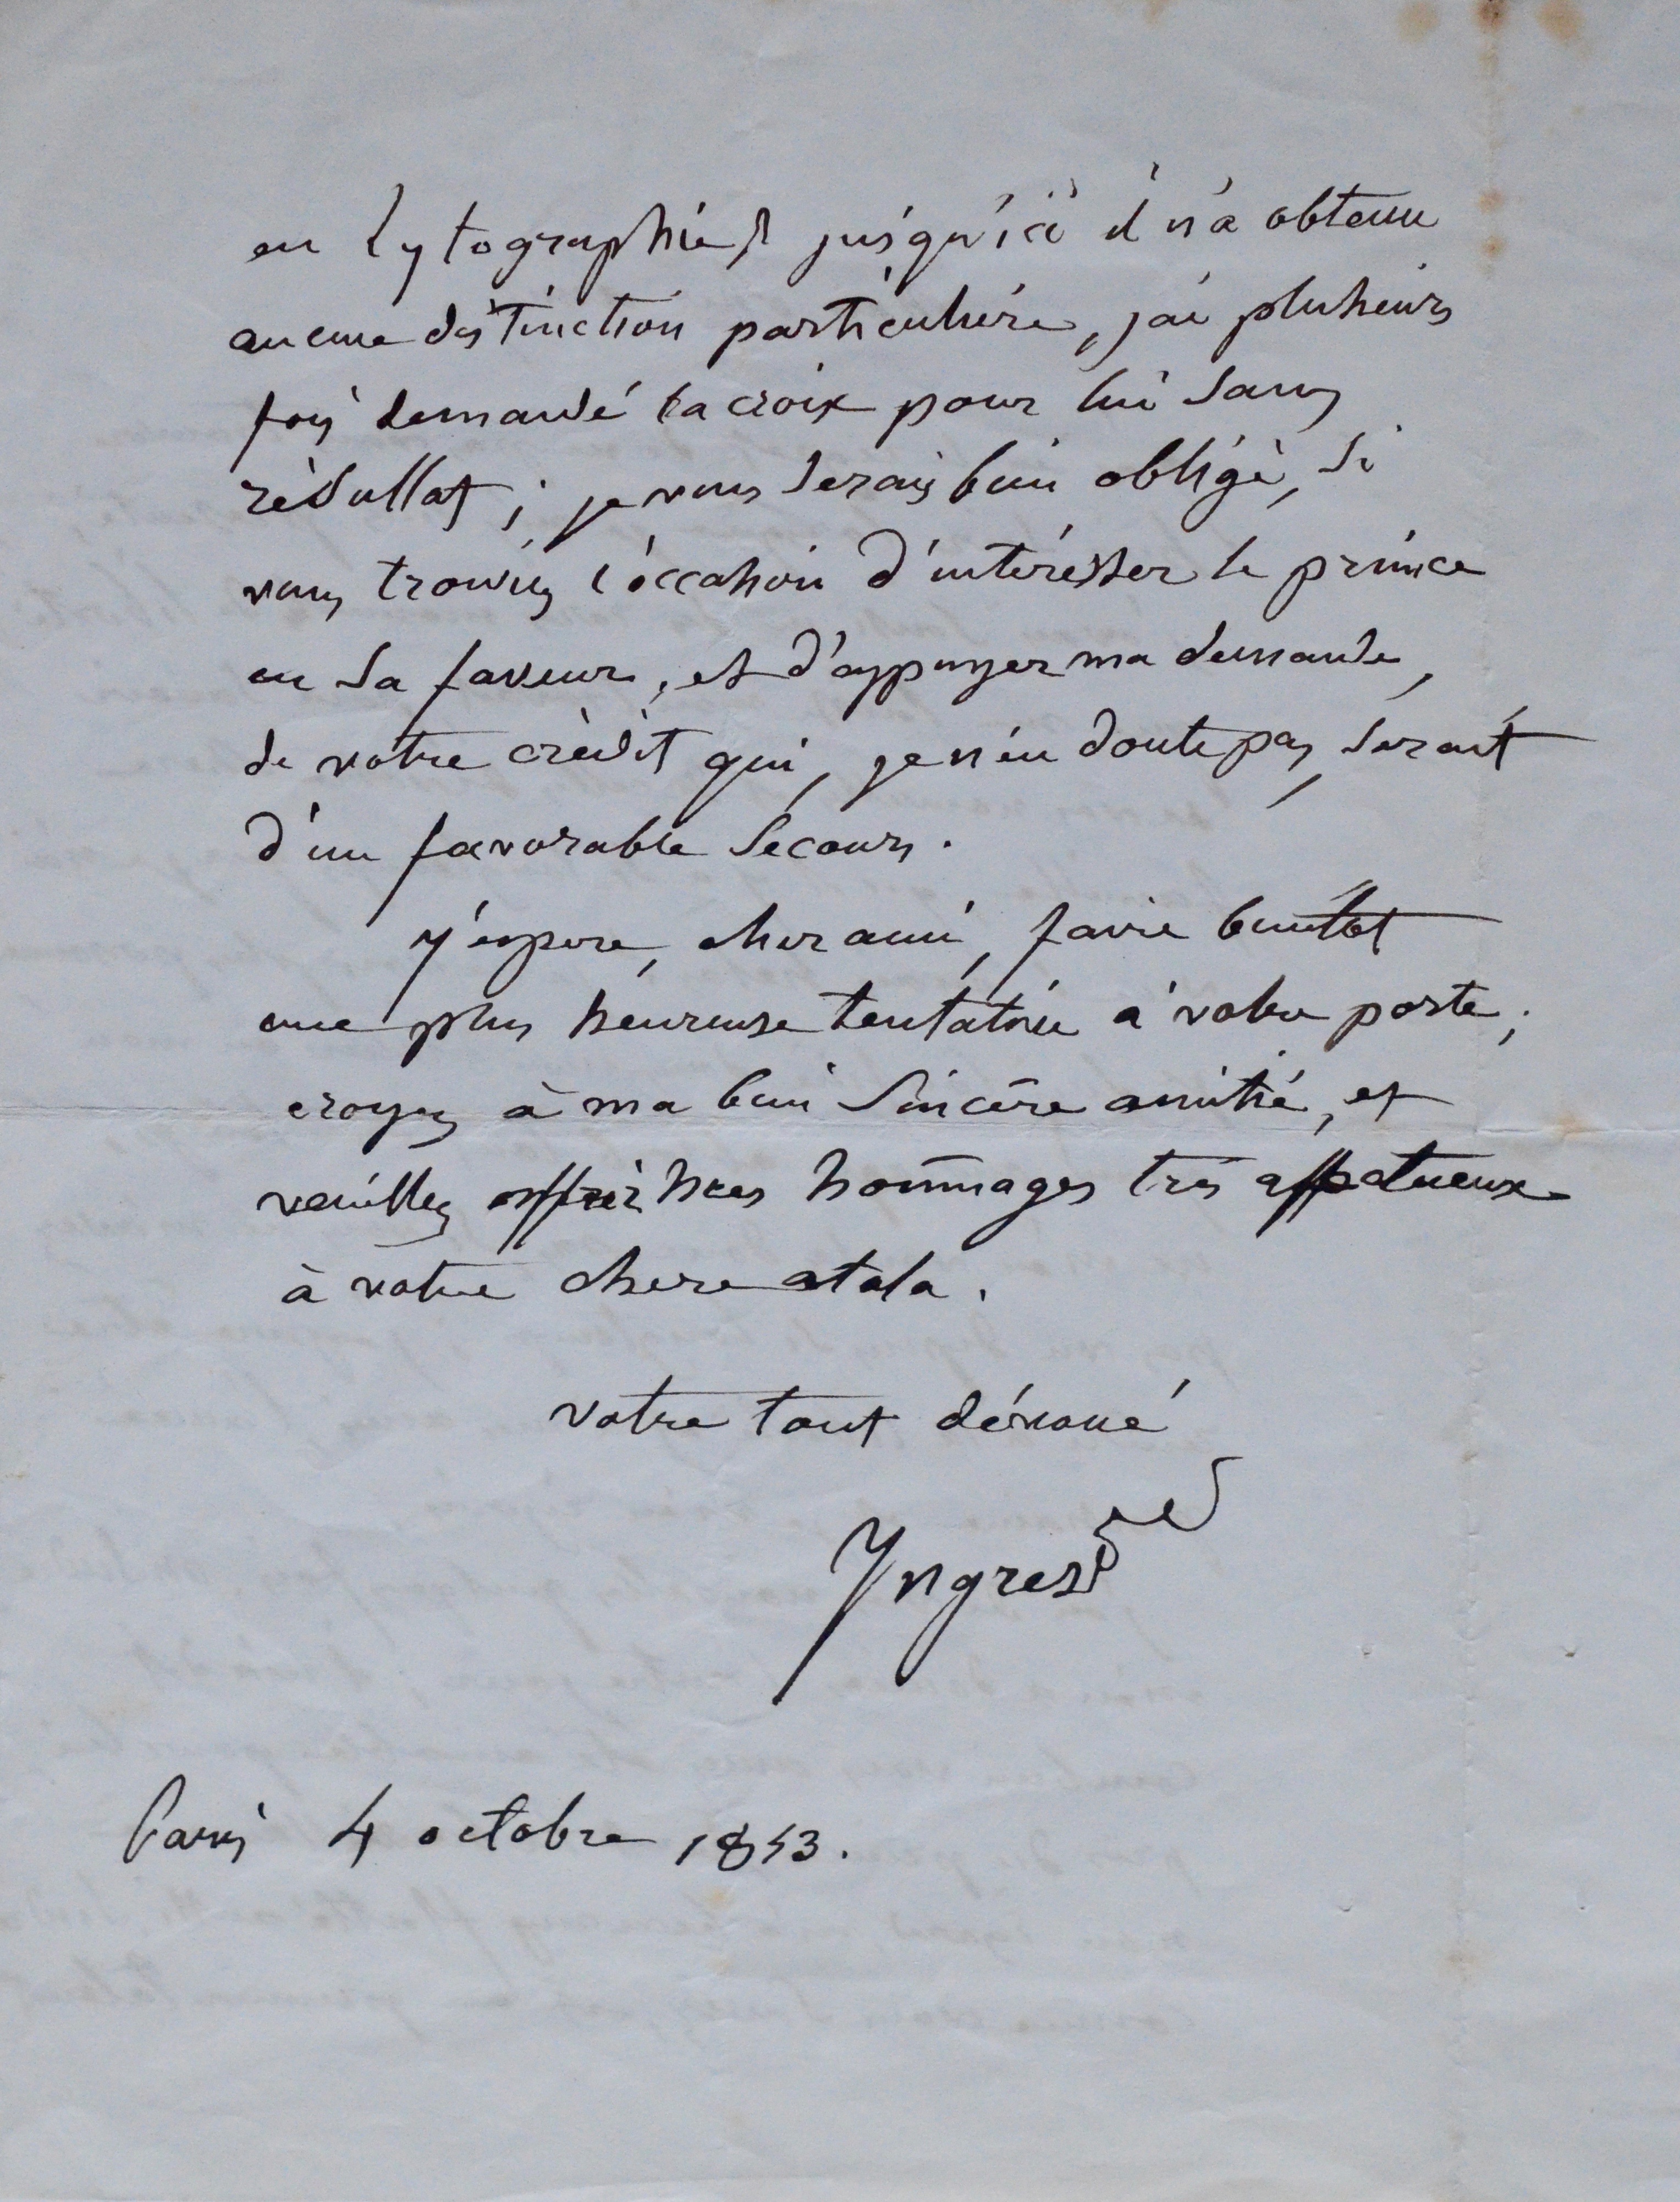 en lytographie, jusqu'ici il n'a obtenu
aucune distinction particulière, j'ai plusieurs
fois demandé la croix pour lui sans
résultat ; je vous serais bien obligé, si
vous trouviez l'occasion d'intéresser le prince
en sa faveur, et d'appuyer ma demande,
de votre crédit qui, je n'en doute pas, serait
d'un favorable secours.
j'espere, cher ami, faire bientot
une plus heureuse tentative à votre porte ;
croyez à ma bien sincère amitié, et
veuillez offrir mes hommages très affectueux
à votre chere atala.
votre tout dévoué
Ingres
Paris 4 octobre 1853.